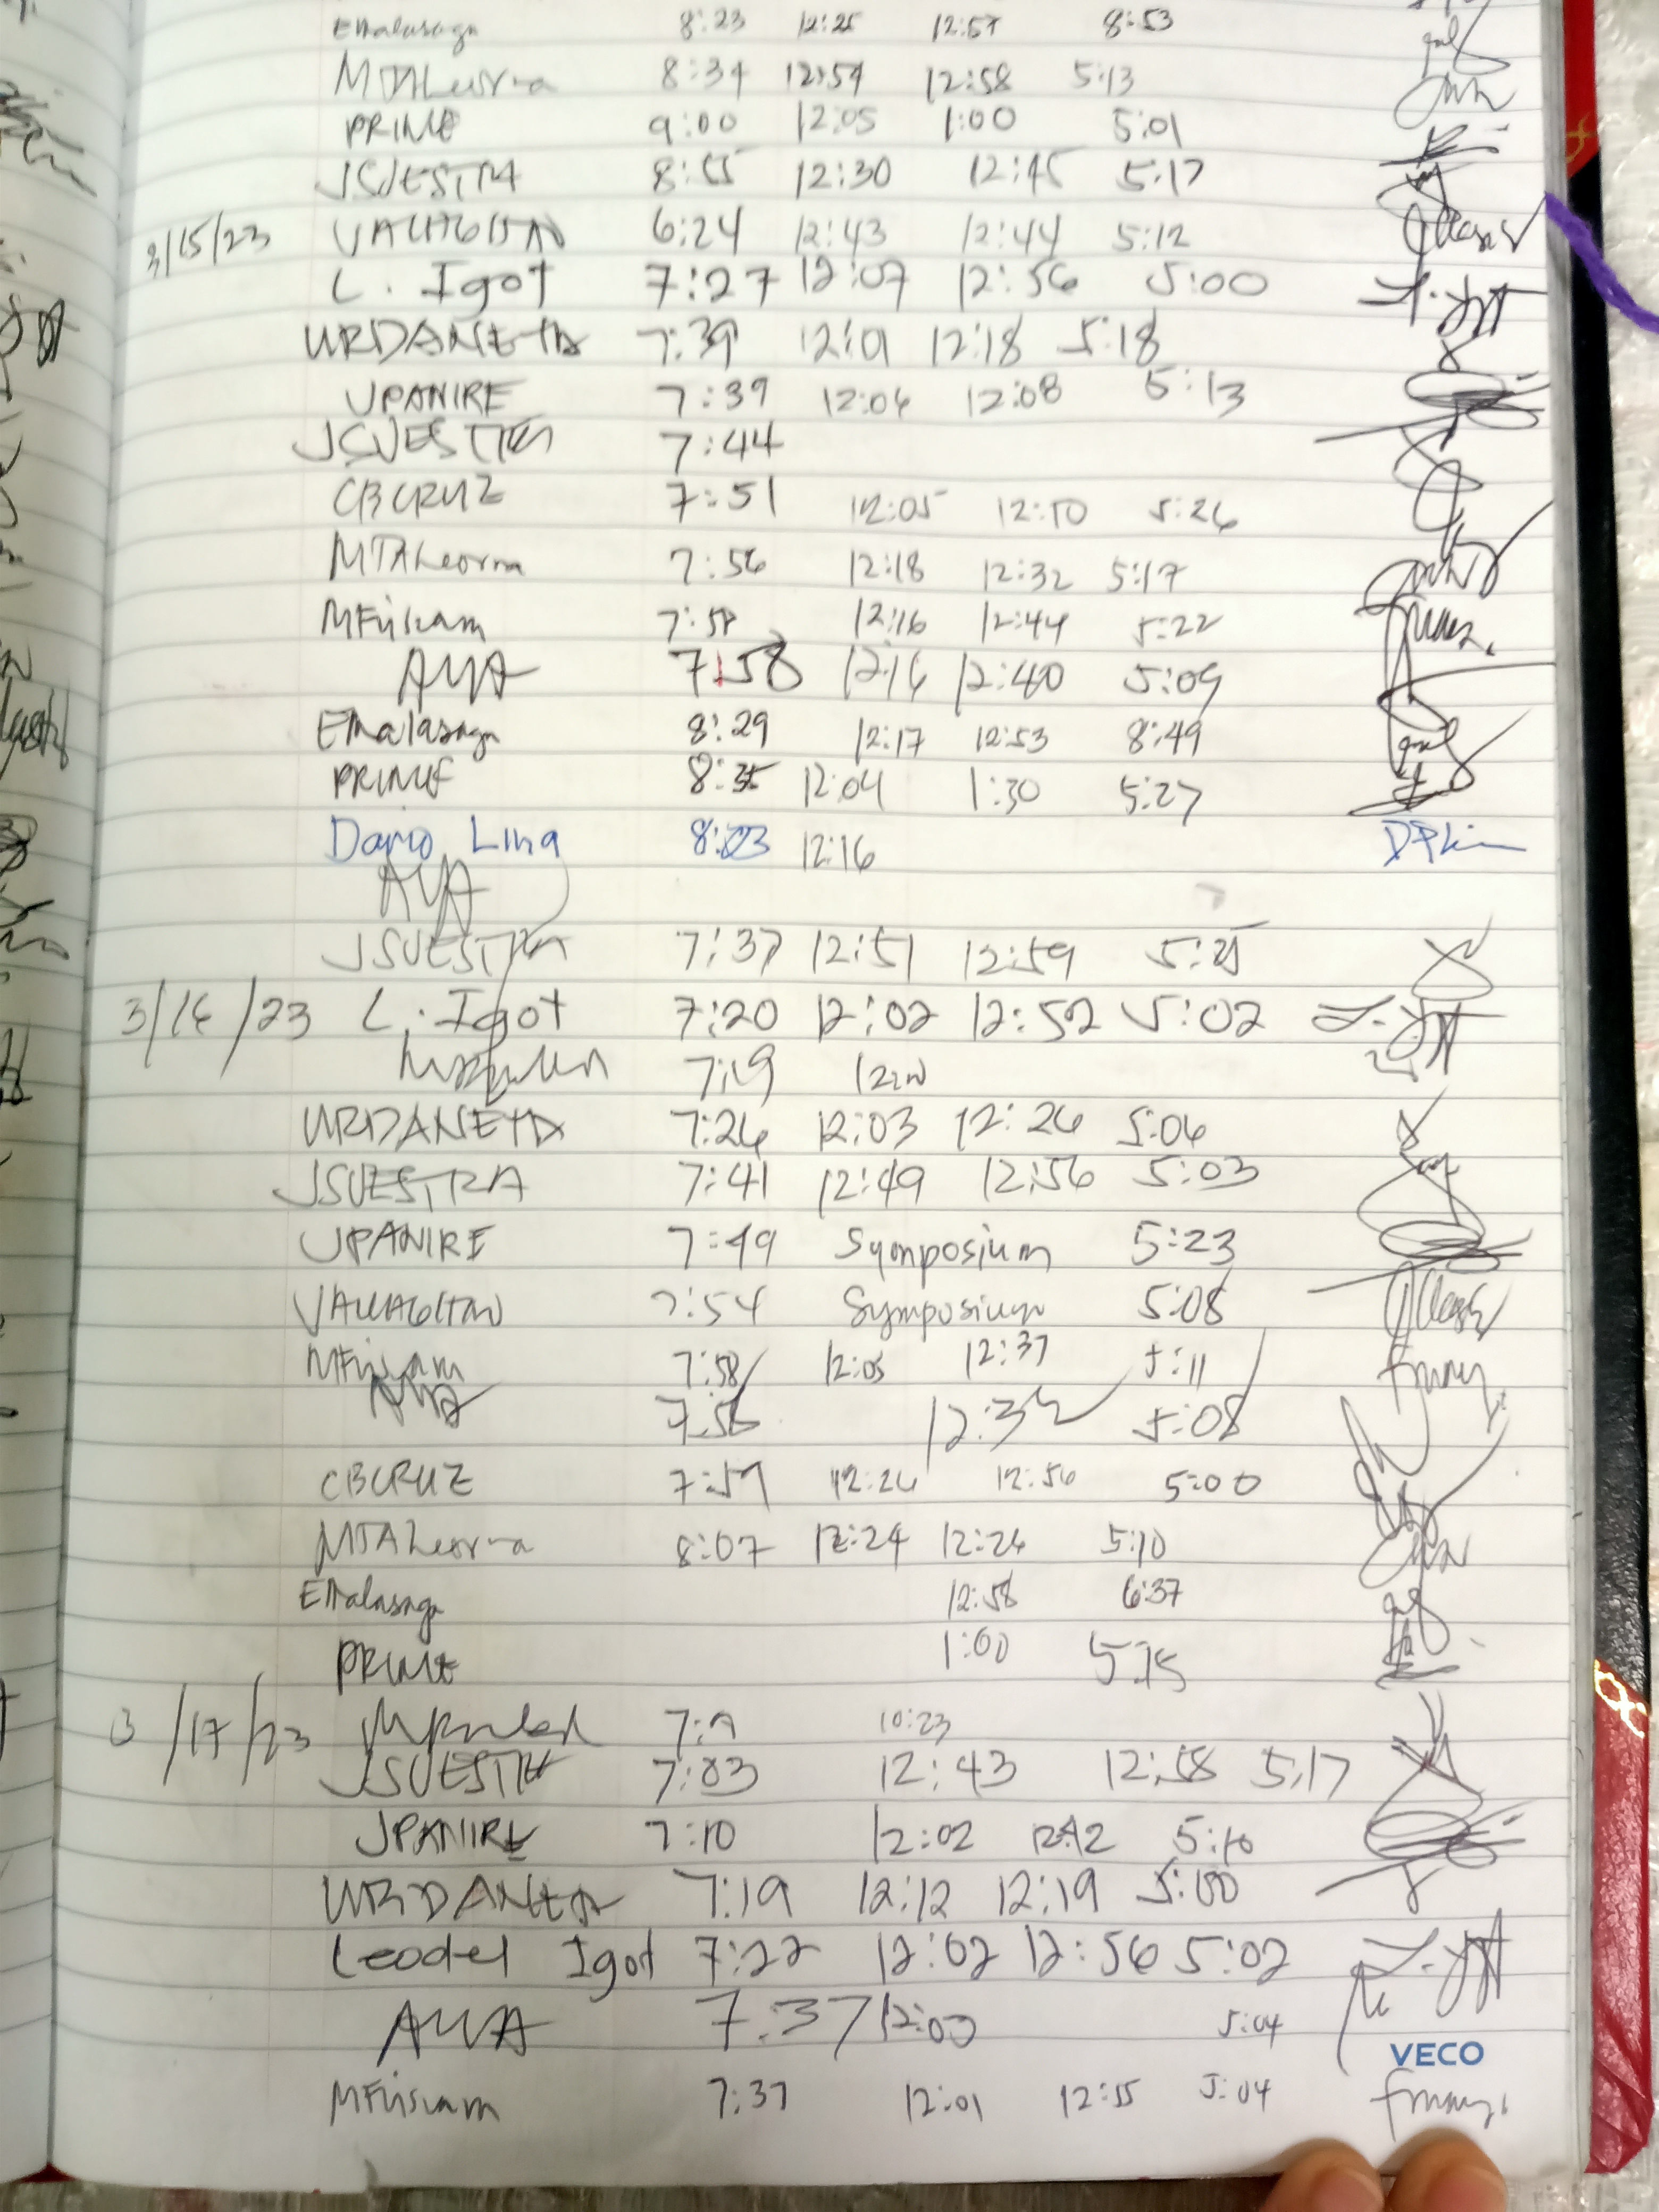 EMalasaga 8:23 12:25 12:57 8:53
MTALeorna 8:34 12:54 12:58 5:13
PRIME 9:00 12:05 1:00 5:01
JSUESTRA 8:55 12:30 12:45 5:17
3/15/23 6:24 12:43 12:44 5:12
L. Igot 7:27 12:07 12:56 5:00
URDANETA 7:39 12:01 12:18 5:18
JPANIRE 7:39 12:06 12:08 5:13
JSUESTRA 7:44
CBCRUZ 7:51 12:05 12:50 5:26
MTALeorna 7:56 12:18 12:32 5:17
12:16 12:44 5:22
AUA 7:58 12:16 12:40 5:09
EMalasaga 8:29 12:17 12:53 8:49
PRIME 8:35 12:04 1:30 5:27
Dario Lina 8:03 12:16
AUA
JSUESTRA 7:37 12:51 12:59 5:25
3/16/23 L. Igot 7:20 12:02 12:52 5:02
7:19
URDANETA 7:26 12:03 12:26 5:06
JSUESTRA 7:41 12:49 12:56 5:03
JPANIRE 7:49 Symposium 5:23
7:54 Symposium 5:08
7:58 12:05 12:37 5:11
AUA 7:56 5:08
CBCRUZ 7:59 12:26 12:56 5:00
MTALeorna 8:07 12:24 12:26 5:10
EMalasaga 12:58 6:37
PRIME 1:00 5:15
3/17/23 10:23
JSUESTRA 7:03 12:43 12:58 5:17
JPANIRE 7:10 12:02 12:42 5:10
URDANETA 7:19 12:12 12:19 5:00
Leodel Igot 7:22 12:02 12:56 5:02
AUA 7:37 12:00 5:04
VECO
7:37 12:01 12:55 5:04